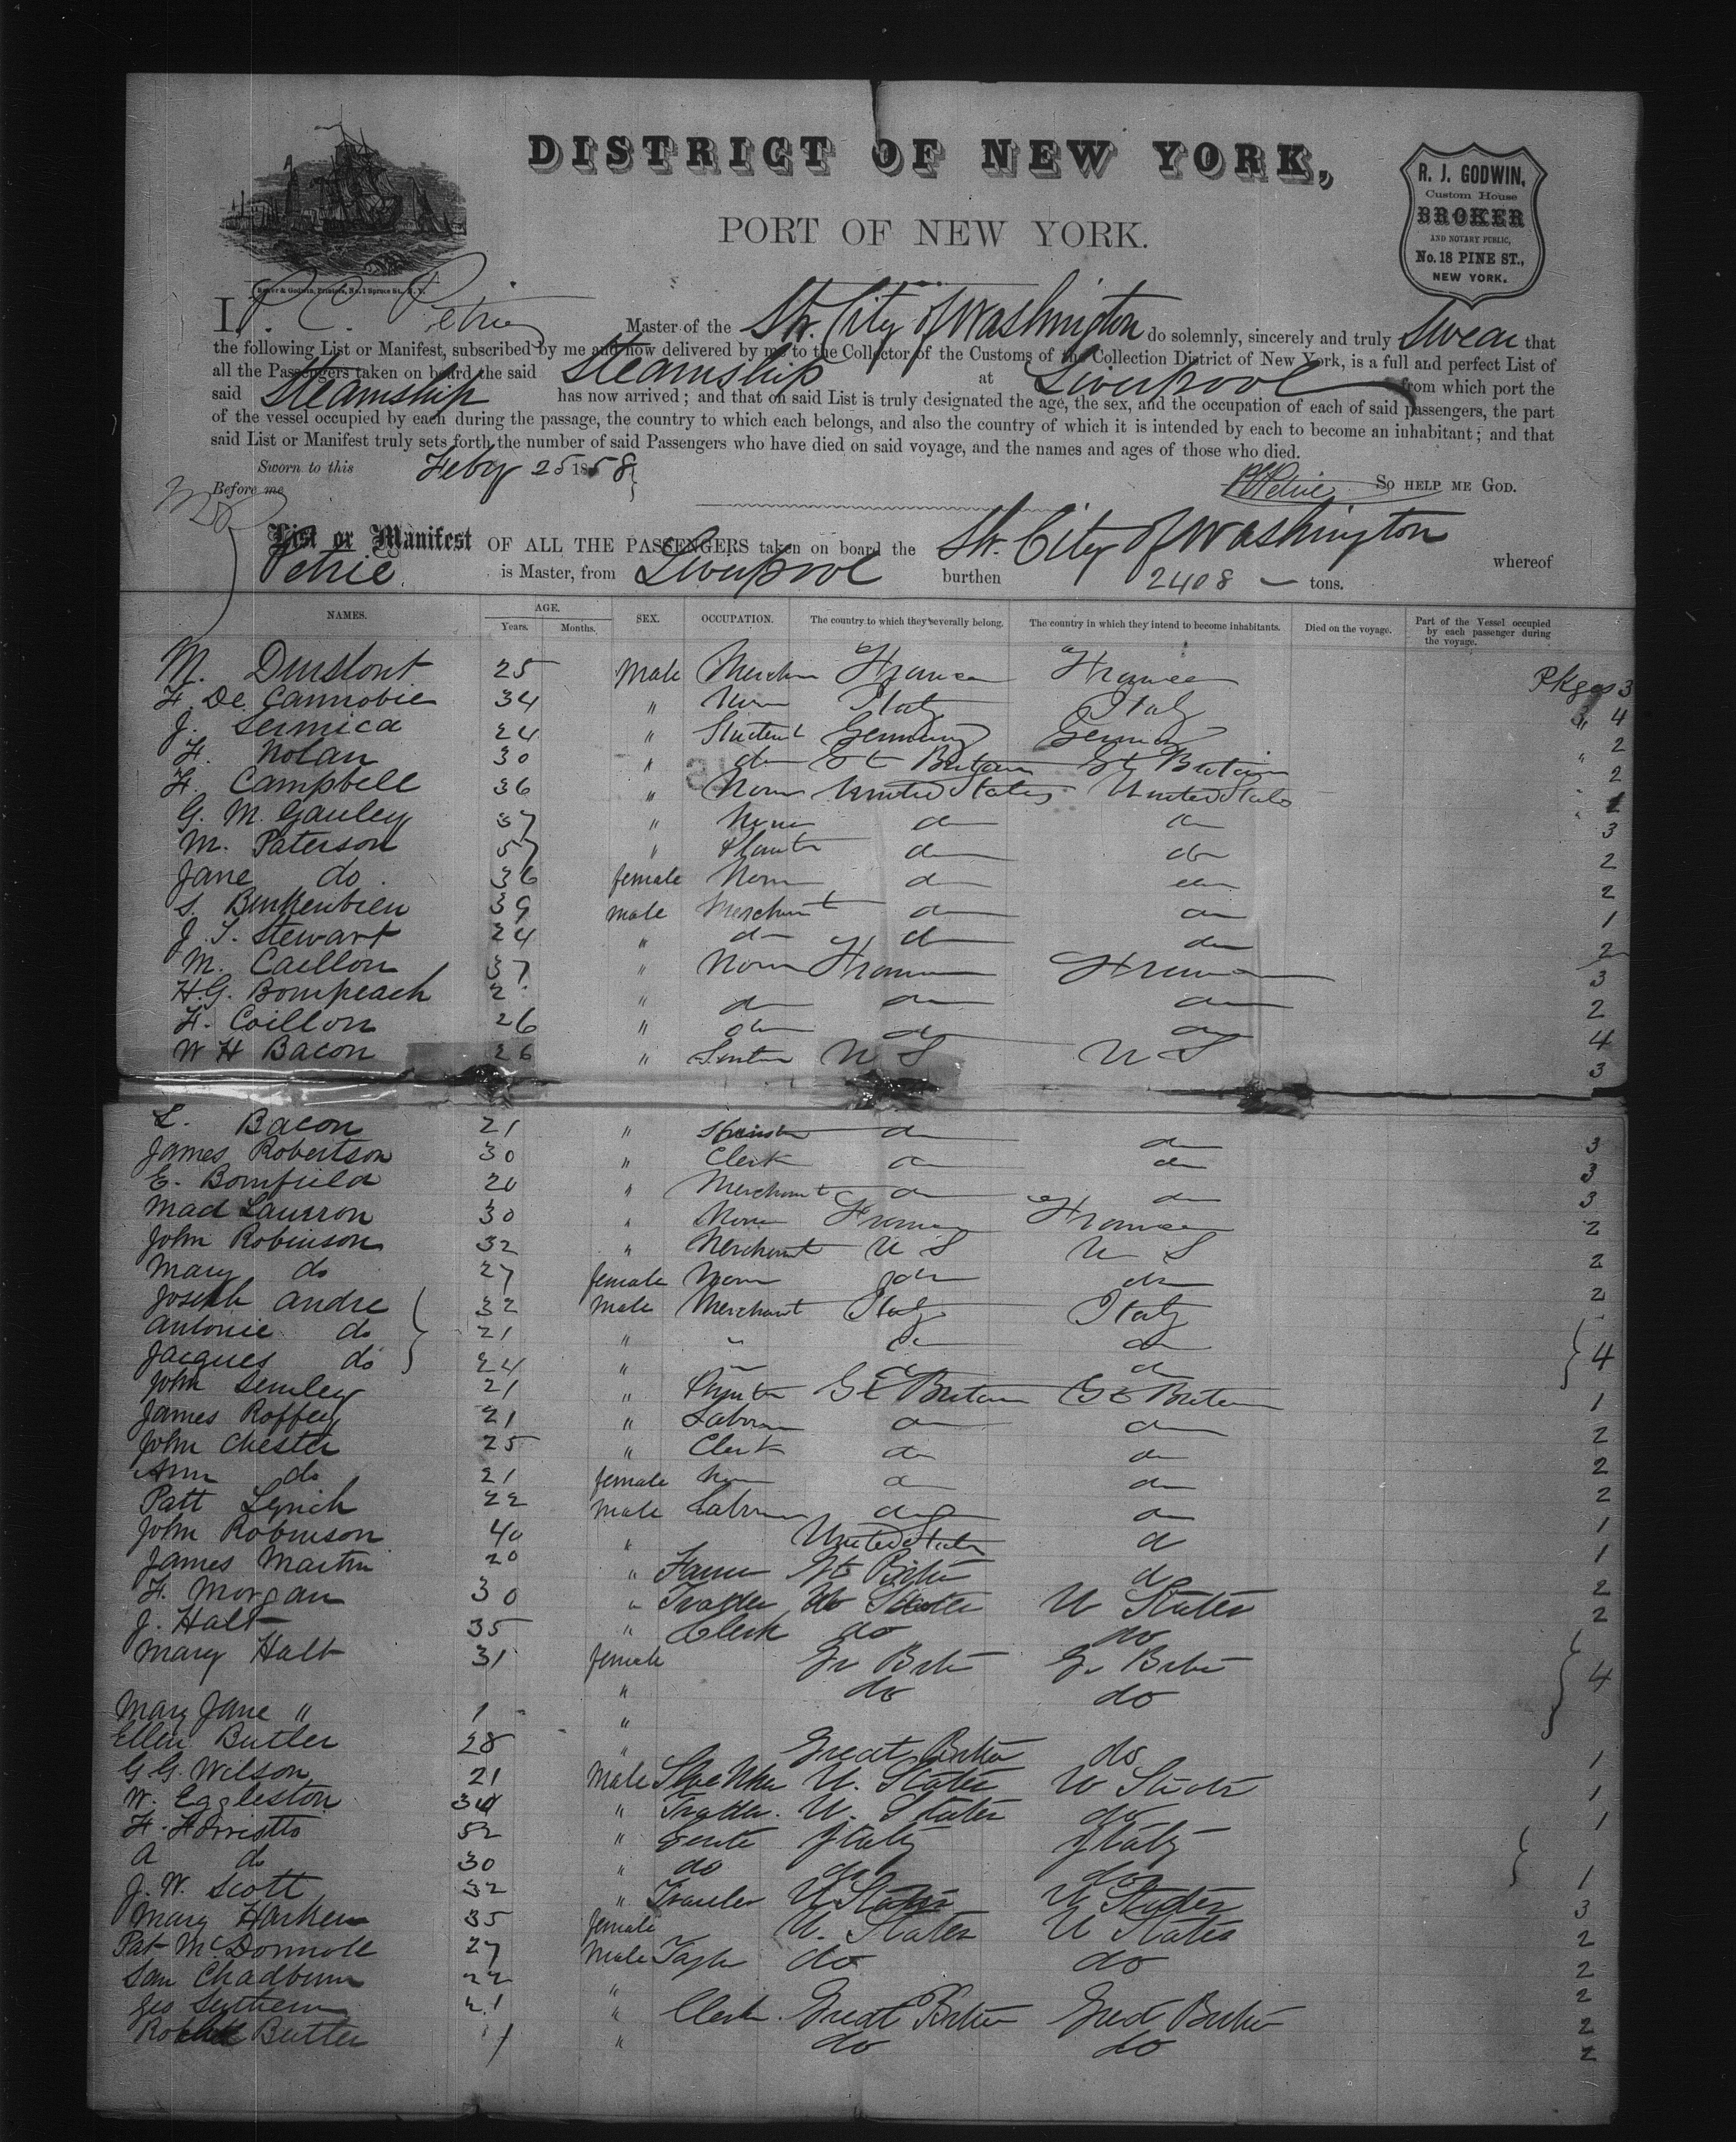 DISTRICT OF NEW YORK,
PORT OF NEW YORK.
R. J. GODWIN,
Custom House
BROKER
AND NOTARY PUBLIC,
No. 18 PINE ST.,
NEW YORK.
Baker & Godwin, Printers, No. 1 Spruce St., N. Y.
I, R. C. Petrie Master of the Str. City of Washington do solemnly, sincerely and truly Swear that
the following List or Manifest, subscribed by me and now delivered by me to the Collector of the Customs of the Collection District of New York, is a full and perfect List of
all the Passengers taken on board the said Steamship at Liverpool from which port the
said Steamship has now arrived; and that on said List is truly designated the age, the sex, and the occupation of each of said passengers, the part
of the vessel occupied by each during the passage, the country to which each belongs, and also the country of which it is intended by each to become an inhabitant; and that
said List or Manifest truly sets forth the number of said Passengers who have died on said voyage, and the names and ages of those who died.
Sworn to this Feby 25 1858
Before me
Petrie So HELP ME GOD.
List or Manifest OF ALL THE PASSENGERS taken on board the Str. City of Washington whereof
Petrie is Master, from Liverpool burthen 2408 — tons.
NAMES. AGE. Years. Months. SEX. OCCUPATION. The country to which they severally belong. The country in which they intend to become inhabitants. Died on the voyage. Part of the Vessel occupied by each passenger during the voyage.
M. 25 Male France France Pkges 3
F. De Cannobie 34 " None Italy Italy " 4
J. Sermica 24 " Student Germany Germany 2
F. Nolan 30 " do Gt Britain Gt Britain " 2
F. Campbell 36 " None United States United States
G. M. Gauley 37 " None do do 3
M. Paterson 57 " do do 2
Jane do 36 female None do do 2
S. 39 male Merchant do do 1
J. S. Stewart 24 " do do do 2
M. Caillon 37 " None France France 3
H.G. Bompeach " do do do 2
F. Caillon 26 " do do do 4
W H Bacon 26 " U S U S 3
L. Bacon 21 " do do 3
James Robertson 30 " Clerk do do 3
E. Bomfield 20 " Merchant do do 3
Mad 30 " None France France 2
John Robinson 32 " Merchant U S U S 2
Mary do 27 female None do do 2
Joseph Andre 32 Male Merchant Italy Italy
Antonie do 21 " " do do 4
Jacques do 24 " " do do
John Semley 21 " Gt Britain Gt Britain 1
James Roffey 21 " Labourer do do 2
John Chester 25 " Clerk do do 2
Ann do 21 female None do do 2
Patt Lynch 22 Male Labourer do do 1
John Robinson 40 " United States do 1
James Martin 20 " Farmer Gt Britn do 2
F. Morgan 30 " Trader U States U States 2
J. Halt 35 " Clerk do do
Mary Halt 31 female Gr Britn Gr Britn 4
" do do
Mary Jane " 1 "
Ellen Butler 28 " Great Britn do 1
G G. Wilson 21 Male U. States U States 1
W. Eggleston 34 " Trader. U. States do 1
F. 52 " Gent Italy Italy
A do 30 " do do do 1
J. W. Scott 32 " U States U States 3
Mary Harken 35 female U. States U States 2
Pat McDonnell 27 Male do do 2
Sam Chadburn 22 " 2
Geo 21 " Clerk. Great Britn Great Britn 2
Butler " do do 2